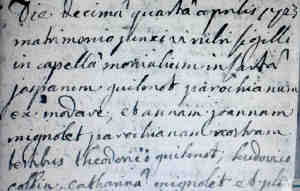 Die decima quarta aprilis 1723
matrimonio junxi viritri sigilli
in capella monialium in
jaspanem quilmot parochianum
ex modave, et annam joannam
mignolet parochianam nostram
testibus theodorico quilmot, ludovico
collin, catharina mignolet et